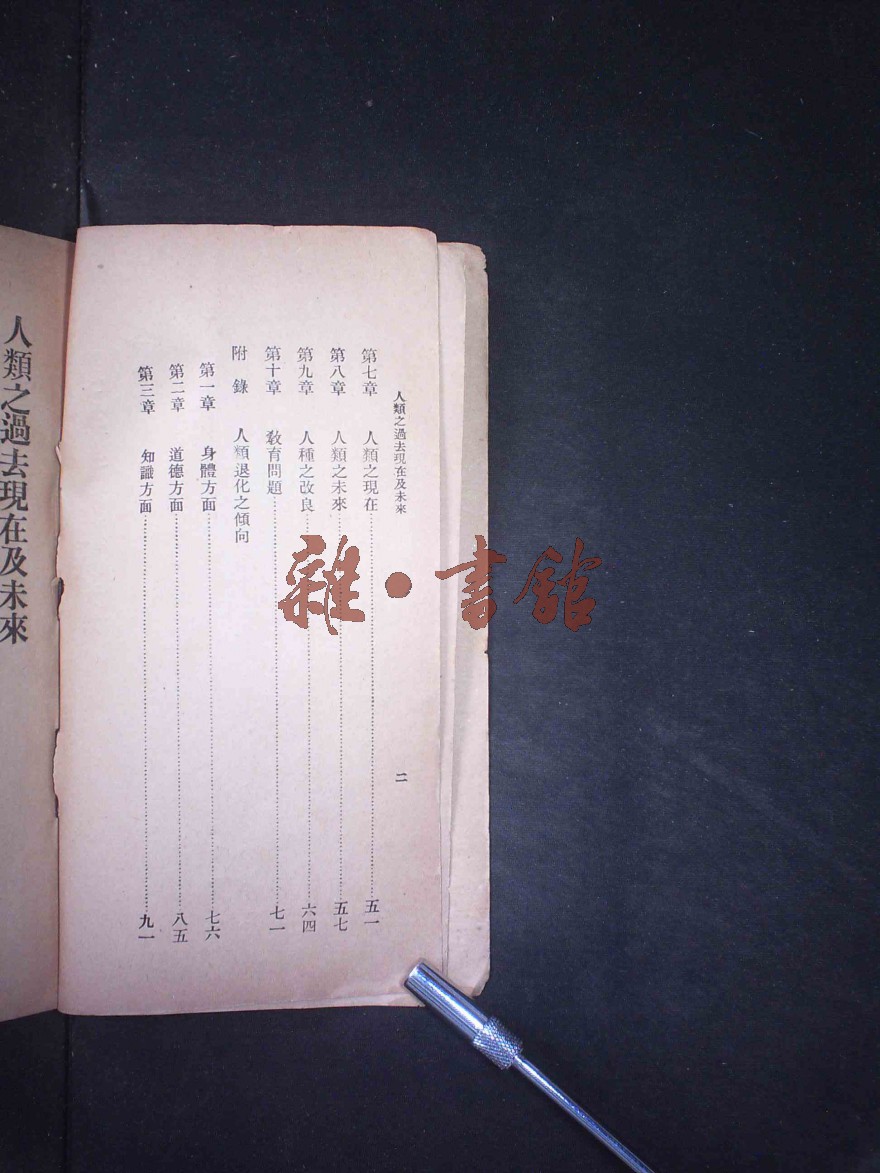 人類之過去現在及未來
二
第七章 人類之現在 五一
第八章 人類之未來 五七
第九章 人種之改良 六四
第十章 敎育問題 七一
附錄 人類退化之傾向
第一章 身體方面 七六
第二章 道德方面 八五
第三章 知識方面 九一
人類之過去現在及未來
雜·書館